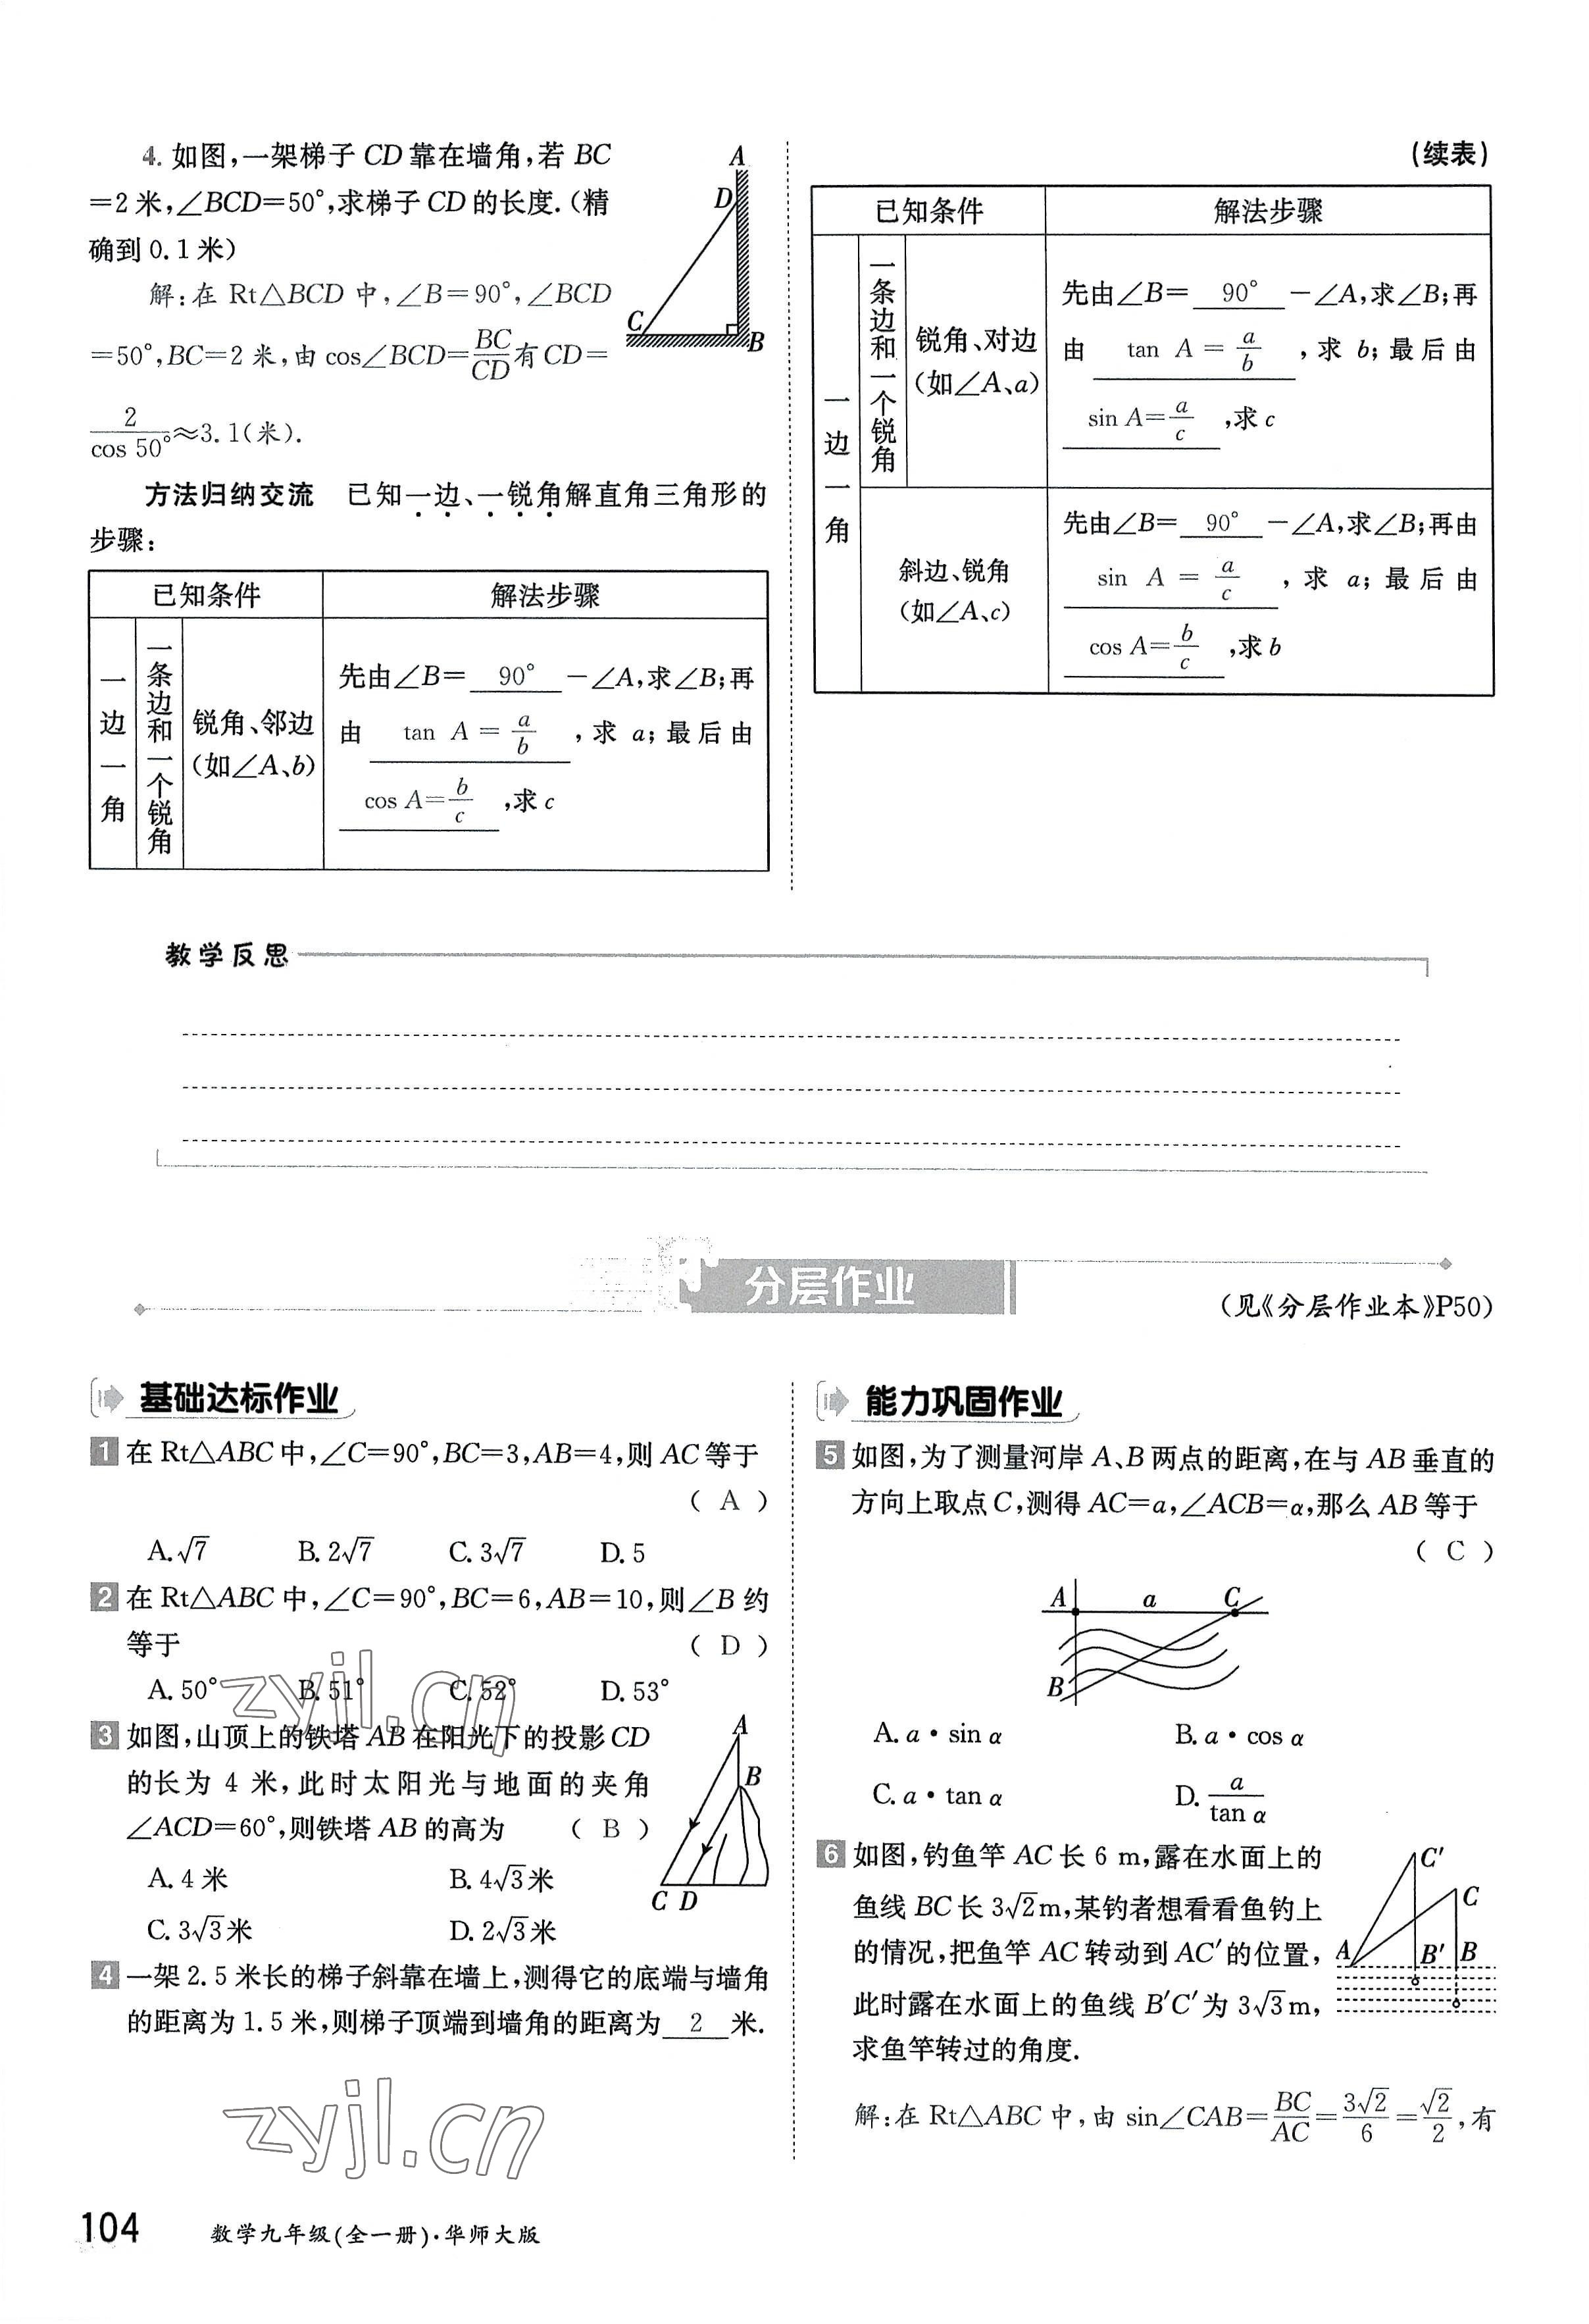 4. 如图,一架梯子 CD 靠在墙角,若 BC
=2 米,∠BCD=50°,求梯子 CD 的长度.(精
确到 0.1 米)
解:在 Rt△BCD 中,∠B=90°,∠BCD
=50°,BC=2 米,由 cos∠BCD=BC/CD 有 CD=
2/cos 50°≈3.1(米).
A
D
C
B
方法归纳交流 已知一边、一锐角解直角三角形的
步骤:
已知条件 解法步骤
一边一角
一条边和一个锐角
锐角、邻边
(如∠A、b)
先由∠B= 90° -∠A,求∠B;再
由 tan A = a/b ,求 a;最后由
cos A=b/c ,求 c
(续表)
已知条件 解法步骤
一边一角
一条边和一个锐角
锐角、对边
(如∠A、a)
先由∠B= 90° -∠A,求∠B;再
由 tan A = a/b ,求 b;最后由
sin A=a/c ,求 c
斜边、锐角
(如∠A、c)
先由∠B= 90° -∠A,求∠B;再由
sin A = a/c ,求 a;最后由
cos A=b/c ,求 b
教学反思
分层作业
(见《分层作业本》P50)
基础达标作业
1 在 Rt△ABC 中,∠C=90°,BC=3,AB=4,则 AC 等于
( A )
A.√7 B.2√7 C.3√7 D.5
2 在 Rt△ABC 中,∠C=90°,BC=6,AB=10,则∠B 约
等于 ( D )
A.50° B.51° C.52° D.53°
3 如图,山顶上的铁塔 AB 在阳光下的投影 CD
的长为 4 米,此时太阳光与地面的夹角
∠ACD=60°,则铁塔 AB 的高为 ( B )
A.4 米 B.4√3米
C.3√3米 D.2√3米
A
B
C D
4 一架 2.5 米长的梯子斜靠在墙上,测得它的底端与墙角
的距离为 1.5 米,则梯子顶端到墙角的距离为 2 米.
能力巩固作业
5 如图,为了测量河岸 A、B 两点的距离,在与 AB 垂直的
方向上取点 C,测得 AC=a,∠ACB=α,那么 AB 等于
( C )
A a C
B
A.a·sin α B.a·cos α
C.a·tan α D.a/tan α
6 如图,钓鱼竿 AC 长 6 m,露在水面上的
鱼线 BC 长 3√2m,某钓者想看看鱼钓上
的情况,把鱼竿 AC 转动到 AC′的位置,
此时露在水面上的鱼线 B′C′为 3√3m,
求鱼竿转过的角度.
C′
C
A B′ B
解:在 Rt△ABC 中,由 sin∠CAB=BC/AC=3√2/6=√2/2,有
zyjl.cn
zyjl.cn
104 数学九年级(全一册)·华师大版